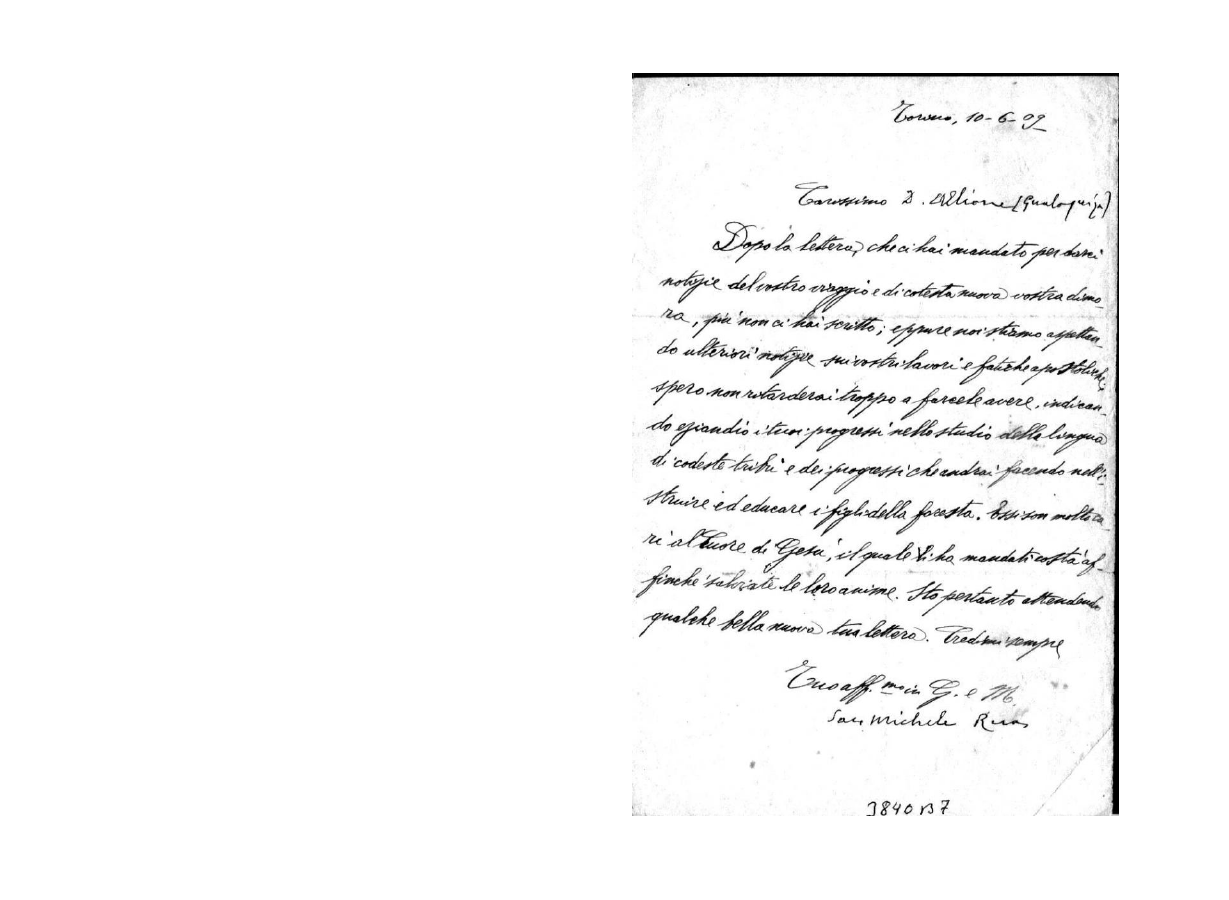 Torino, 10-6-09
Carissimo D. Allioni (Gualaquiza)
Dopo la lettera, che ci hai mandato per darci
notizie del vostro viaggio e di cotesta nuova vostra dimo-
ra, più non ci hai scritto; eppure noi stiamo aspettan-
do ulteriori notizie sui vostri lavori e fatiche apostoliche,
spero non ritarderai troppo a farcele avere, indican-
do eziandio i tuoi progressi nello studio della lingua
di codeste tribù e dei progressi che andrai facendo nell'i-
struire ed educare i figli della foresta. Essi son molto ca-
ri al Cuore di Gesù, il quale vi ha mandati costà af-
finché salviate le loro anime. Sto pertanto attendendo
qualche bella nuova tua lettera. Credimi sempre
Tuo aff.mo in G. e M.
Sac. Michele Rua
3840 B7